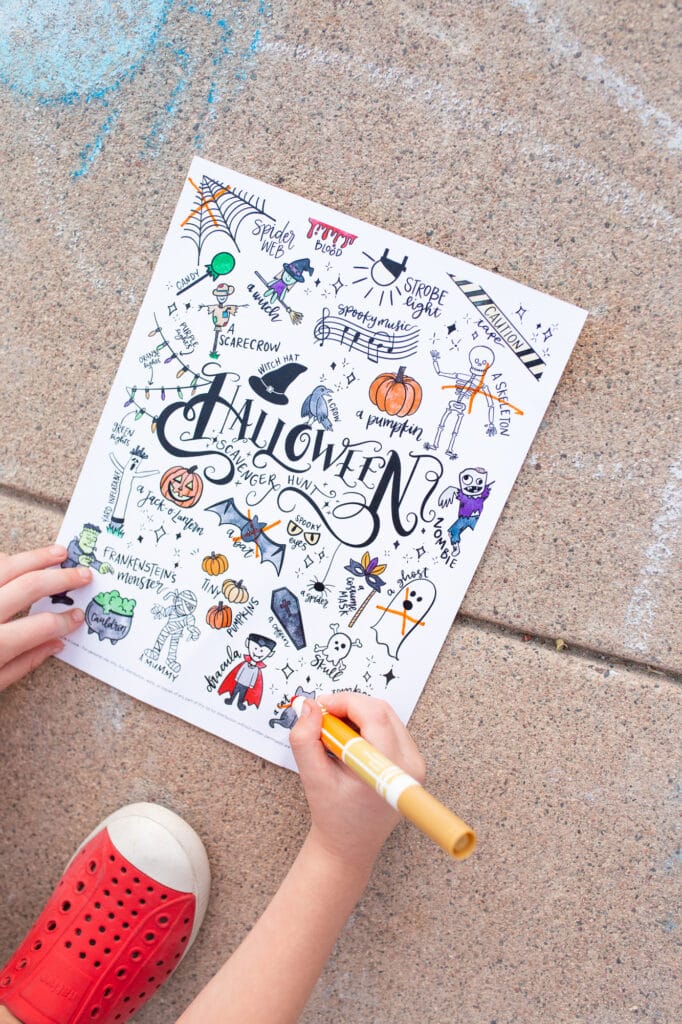 Spider
WEB
BLOOD
CANDY
a witch
STROBE
light
CAUTION
tape
SCARECROW
Spooky music
PURPLE
lights
ORANGE
lights
WITCH HAT
a CROW
a pumpkin
A SKELETON
HALLOWEEN
SCAVENGER HUNT
GREEN
lights
YARD INFLATABLE
a jack-o'lantern
a bat
SPOOKY
eyes
ZOMBIE
FRANKENSTEINS
monster
TINY
PUMPKINS
a spider
a COSTUME
MASK
a ghost
Cauldron
a MUMMY
a coffin
Dracula
Skull
a cat